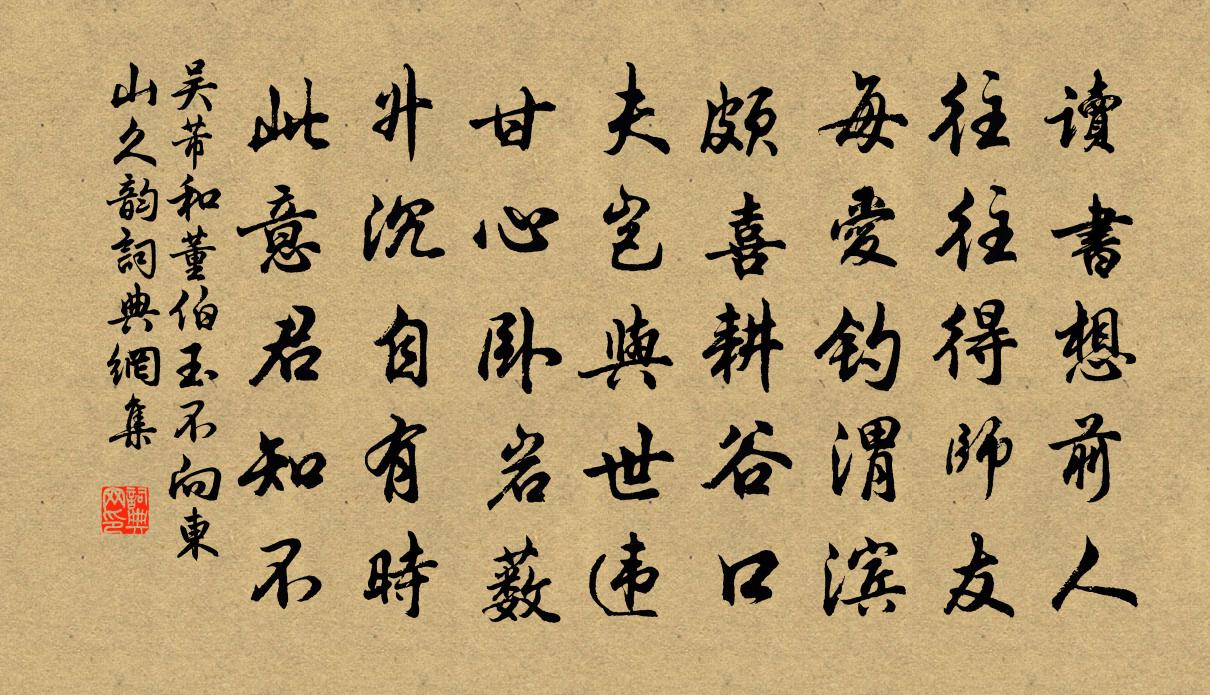 讀書想前人
往往得師友
每愛钓渭滨
頗喜耕谷口
夫岂與世违
甘心卧岩薮
升沉自有時
此意君知不
吴芾和董伯玉不向東
山久韵詞典網集
詞典网印